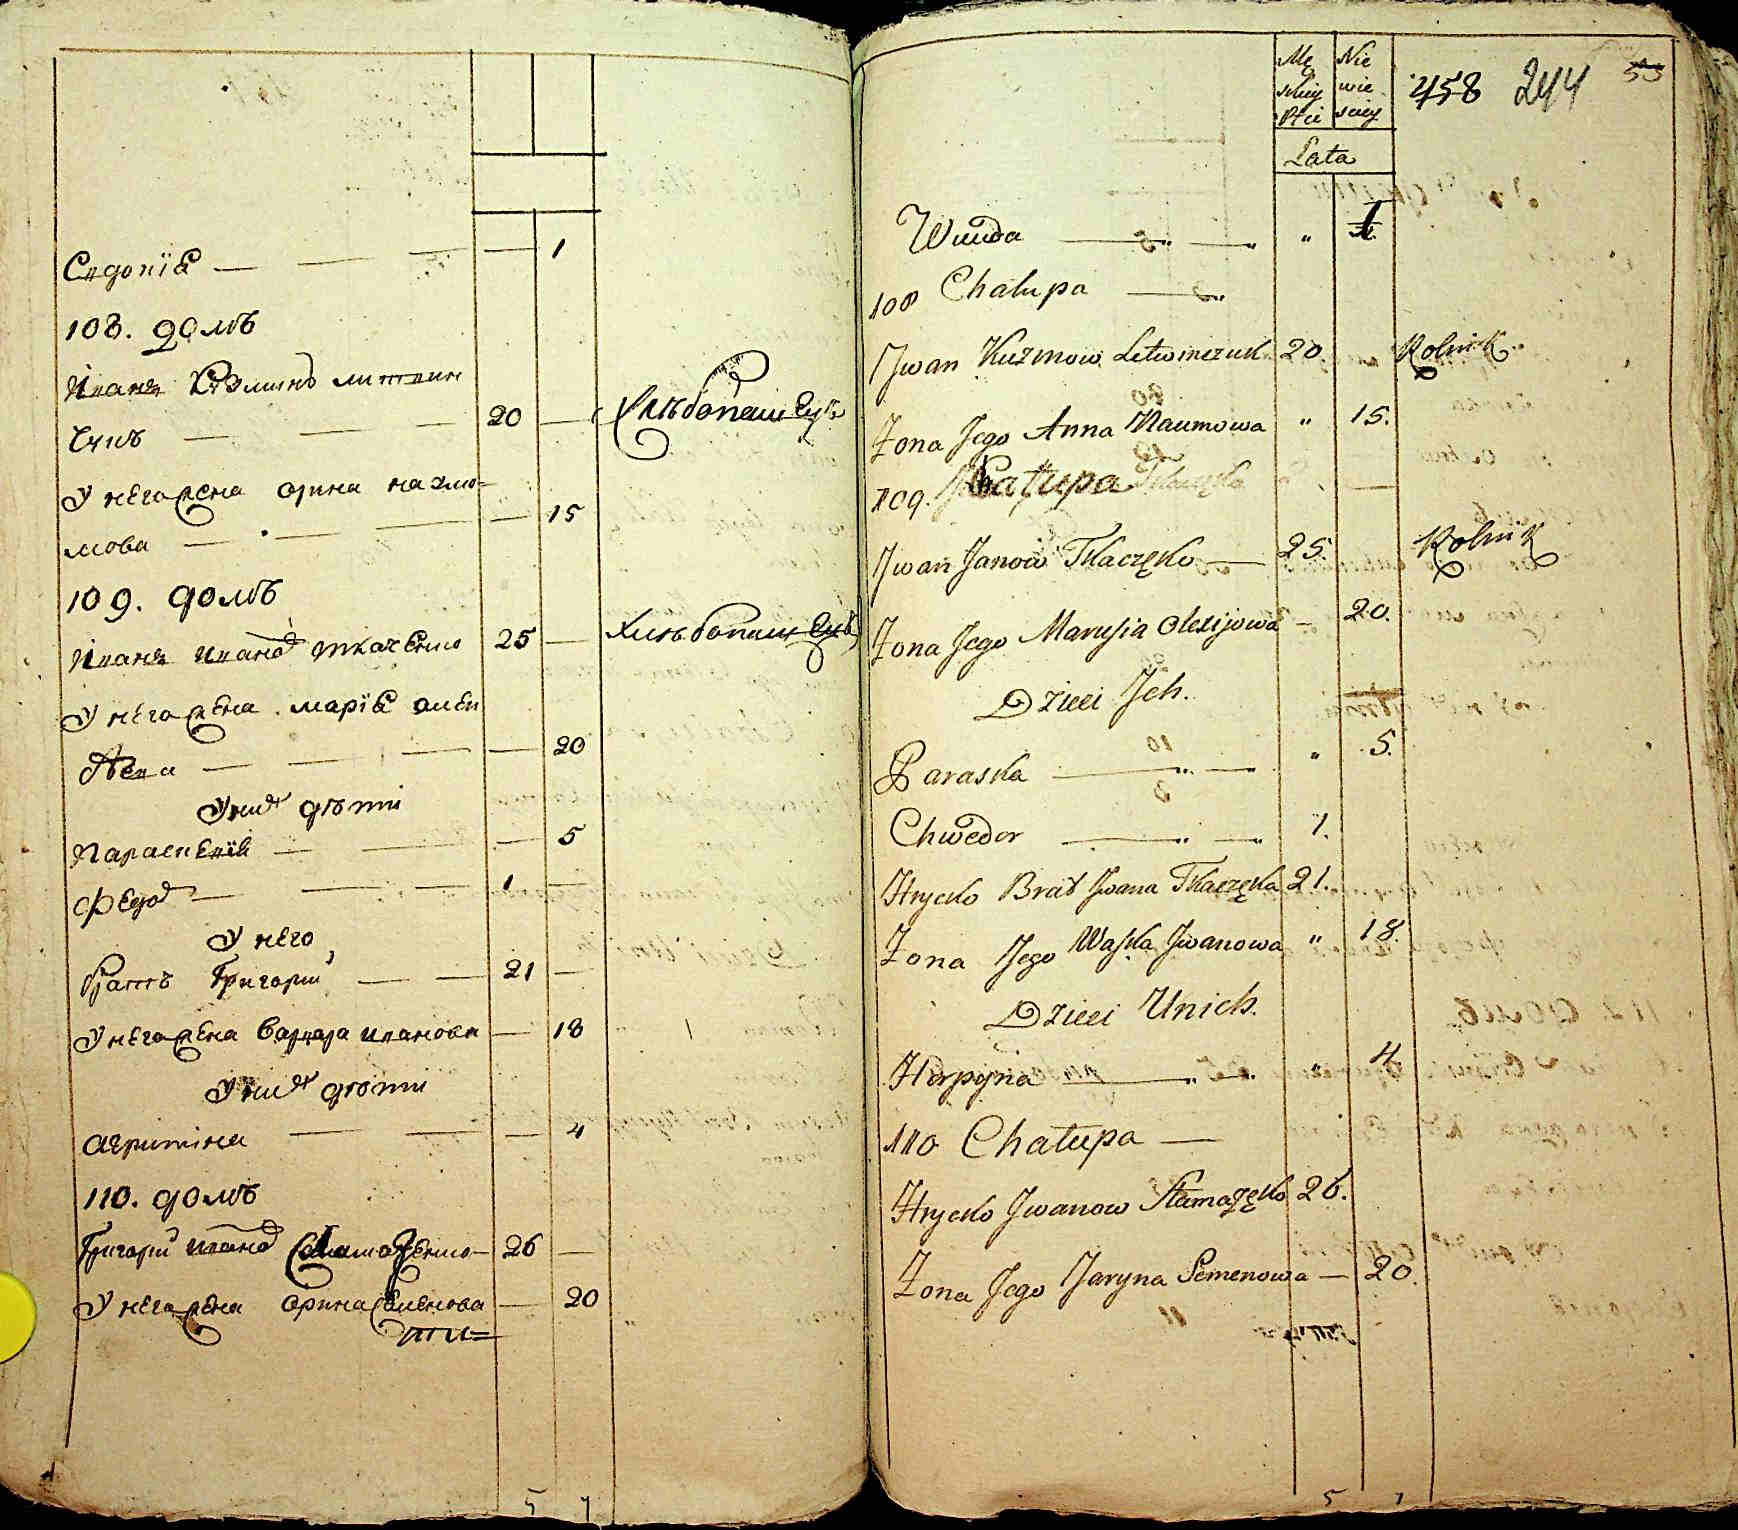 1
108. домъ
Иванъ Козминъ литвин
чукъ — — — 20 — Хлѣбопашецъ
У него жена Орина наумо-
мова — — — — 15
109. домъ
Иванъ Иванов Ткаченко 25 — Хлѣбопашецъ
У него жена Марія Олеи
— — — 20
У них дѣти
Параскевія — — — 5
Федор — — — 1 —
У него
братъ Григорий — — 21 —
У него жена Варвара Иванова — 18
У них дѣти
Агрипина — — — 4
110. домъ
Григорий Иванов 26 —
У него жена Орина Семенова — 20
5 7
Mę Nie
skiey wie
Płci sciey
458 244 53
Lata
" 1
108 Chałupa —
Jwan Kuzmow Letwinczuk 20. Rolnik
Żona Jego Anna Naumowa " 15.
109. Chałupa
Jwan Janow Tkaczęko — 25. Rolnik
Żona Jego Marusia Olexijowa — 20.
Dzieci Jch.
Paraska — " 5.
Chwedor — 1.
Hrycko Brat Jwana Tkaczęka 21.
Żona Jego Waska Jwanowa " 18.
Dzieci Unich.
Horpyna — " 4
110 Chałupa —
Hrycko Jwanow 26.
Żona Jego Jaryna Semenowa — 20.
5 7